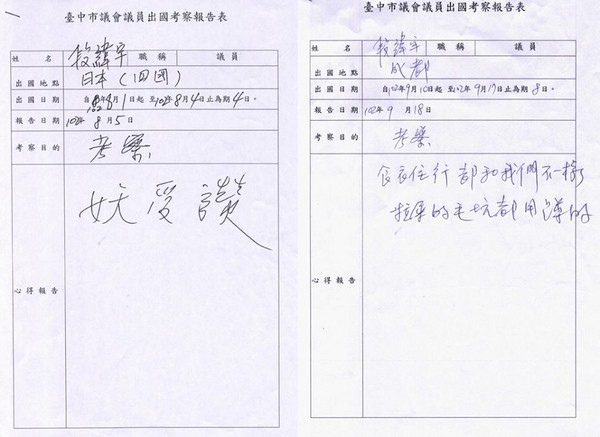 臺中市議會議員出國考察報告表
姓名 段緯宇 職稱 議員
出國地點 日本(四國)
出國日期 自 年8月1日起至102年8月4日止為期4日。
報告日期 102年8月5日
考察目的 考察
心得報告 妖受讚
臺中市議會議員出國考察報告表
姓名 段緯宇 職稱 議員
出國地點 成都
出國日期 自102年9月10日起至102年9月17日止為期8日。
報告日期 102年9月18日
考察目的 考察
心得報告 食衣住行都和我們不一樣
拉屎的毛坑都用蹲的